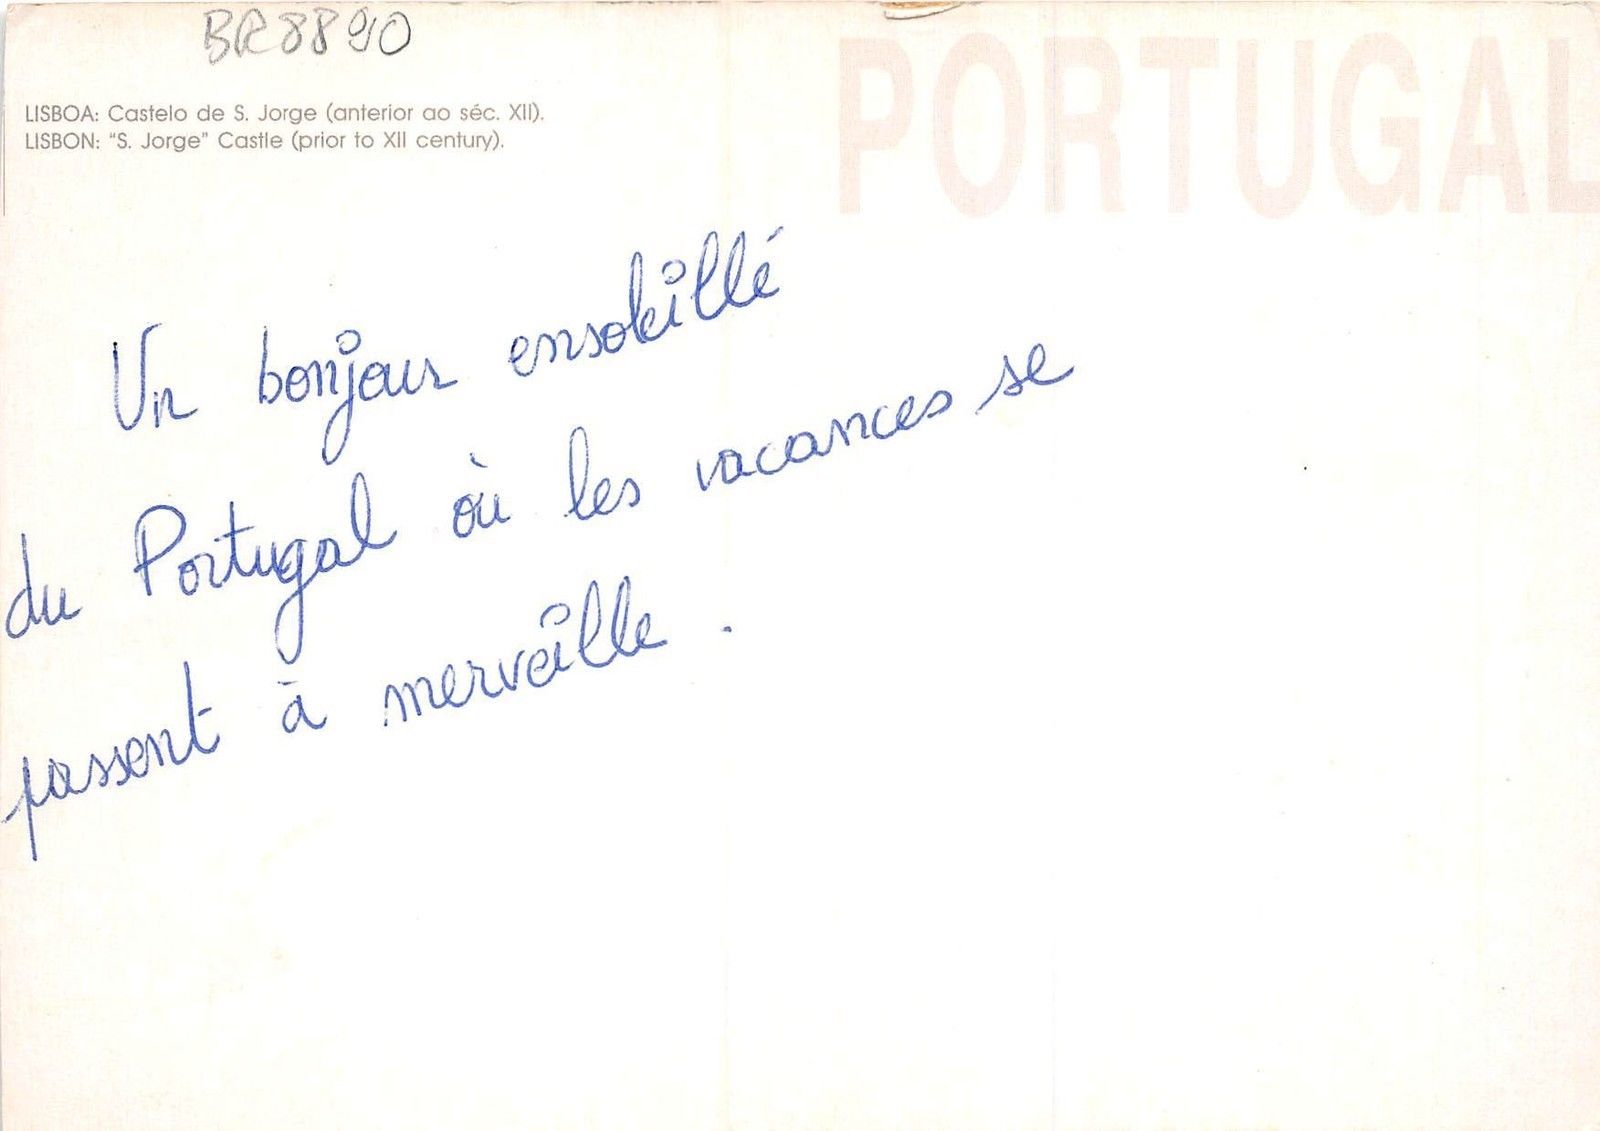 BR8890
PORTUGAL
LISBOA: Castelo de S. Jorge (anterior ao séc. XII).
LISBON: "S. Jorge" Castle (prior to XII century).
Un bonjour ensoleillé
du Portugal où les vacances se
passent à merveille.